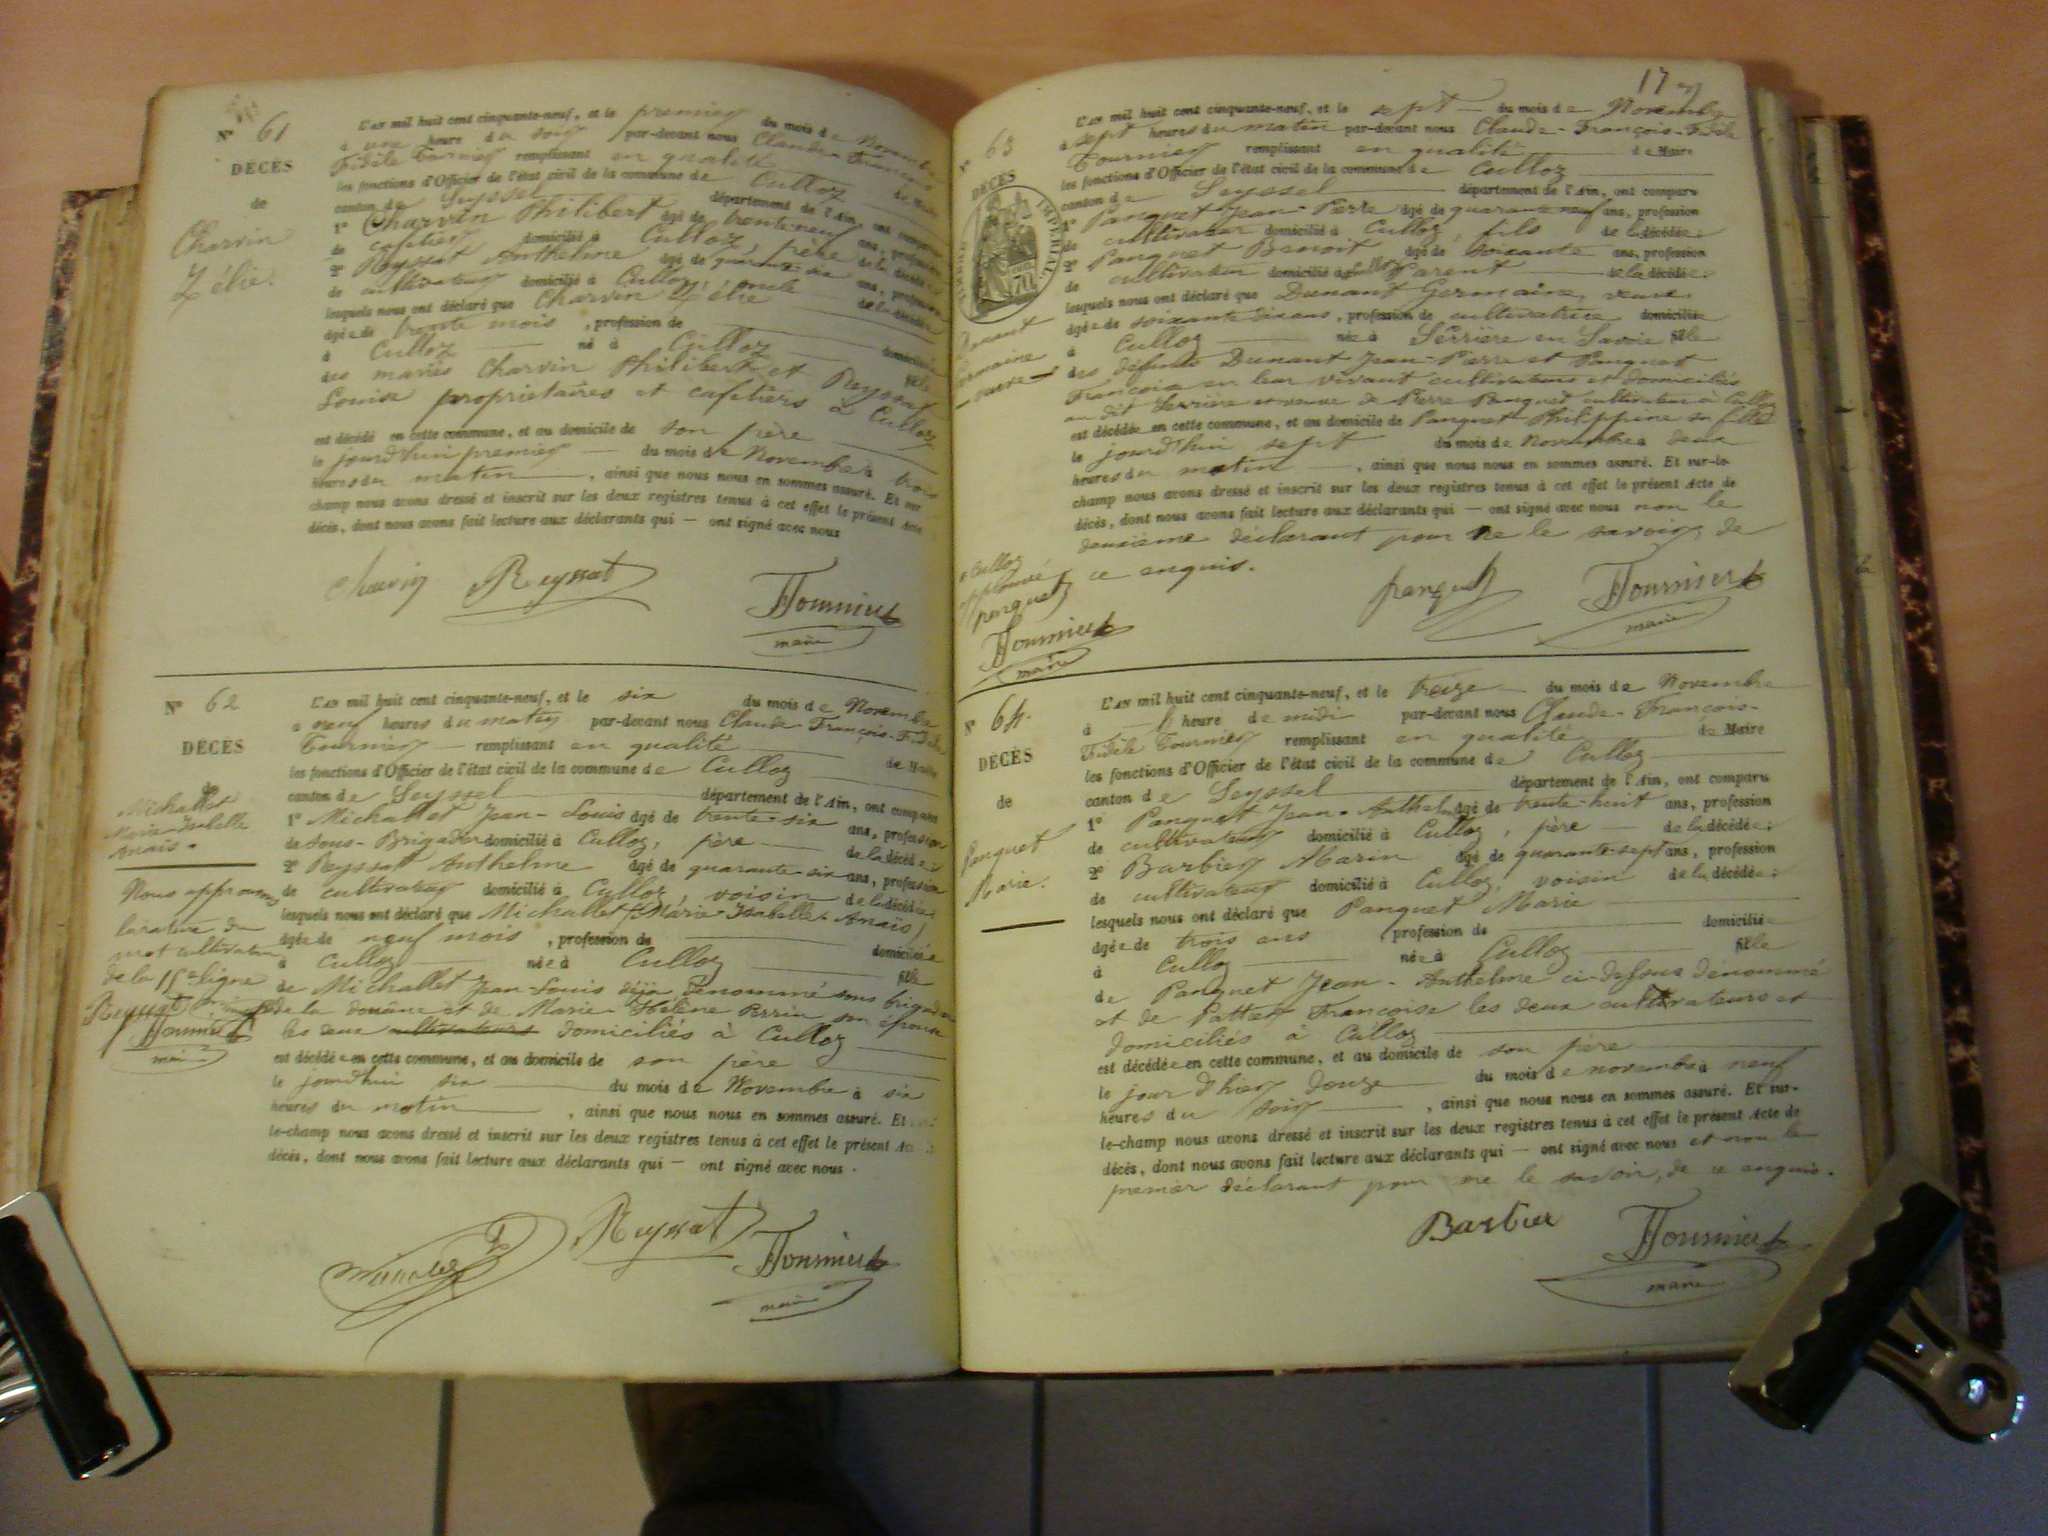 N° 61
DÉCÈS
de
Charvin
Zélie.
L'AN mil huit cent cinquante-neuf, et le premier du mois de Novembre
à une heure du soir par-devant nous Claude-François
Fidèle Tournier remplissant en qualité de Maire
les fonctions d'Officier de l'état civil de la commune de Culloz
canton de Seyssel département de l'Ain, ont comparu
1° Charvin Philibert âgé de trente-neuf ans, profession
de cafetier domicilié à Culloz, père de la décédée
2° Reyssat Anthelme âgé de quarante-six ans, profession
de cultivateur domicilié à Culloz, oncle de la décédée
lesquels nous ont déclaré que Charvin Zélie
âgée de trente mois, profession de domiciliée
à Culloz né à Culloz fille
des mariés Charvin Philibert et Reyssat
Louise propriétaires et cafetiers à Culloz
est décédé en cette commune, et au domicile de son père
le jourd'hui premier du mois de Novembre à trois
heures du matin, ainsi que nous nous en sommes assuré. Et sur
champ nous avons dressé et inscrit sur les deux registres tenus à cet effet le présent Acte
décès, dont nous avons fait lecture aux déclarants qui — ont signé avec nous
Charvin Reyssat Tournier
maire
N° 62
DÉCÈS
de
Michallet
Marie-Isabelle
Anaïs.
Nous approuvons
la rature du
mot cultivateurs
de la 15e ligne
Reyssat
Tournier
maire
L'AN mil huit cent cinquante-neuf, et le six du mois de Novembre
à neuf heures du matin par-devant nous Claude-François-Fidèle
Tournier — remplissant en qualité de Maire
les fonctions d'Officier de l'état civil de la commune de Culloz
canton de Seyssel département de l'Ain, ont comparu
1° Michallet Jean-Louis âgé de trente-six ans, profession
de Sous-Brigadier domicilié à Culloz, père de la décédée
2° Reyssat Anthelme âgé de quarante-six ans, profession
de cultivateur domicilié à Culloz, voisin de la décédée
lesquels nous ont déclaré que Michallet (Marie-Isabelle-Anaïs)
âgée de neuf mois, profession de domiciliée
à Culloz née à Culloz fille
de Michallet Jean-Louis déjà dénommé sous brigadier
de la douane et de Marie-Hélène Perrin son épouse
les deux cultivateurs domiciliés à Culloz
est décédée en cette commune, et au domicile de son père
le jourd'hui six du mois de Novembre à six
heures du matin, ainsi que nous nous en sommes assuré. Et
le-champ nous avons dressé et inscrit sur les deux registres tenus à cet effet le présent Acte
décès, dont nous avons fait lecture aux déclarants qui — ont signé avec nous.
Reyssat Tournier
maire
17
N° 63
DÉCÈS
TIMBRE IMPÉRIAL
Dunant
Germaine
veuve
L'AN mil huit cent cinquante-neuf, et le sept du mois de Novembre
à sept heures du matin par-devant nous Claude-François-Fidèle
Tournier remplissant en qualité de Maire
les fonctions d'Officier de l'état civil de la commune de Culloz
canton de Seyssel département de l'Ain, ont comparu
1° Panguet Jean-Pierre âgé de quarante neuf ans, profession
de cultivateur domicilié à Culloz, fils de la décédée:
2° Panguet Benoit âgé de soixante ans, profession
de cultivateur domicilié à Culloz Parent de la décédée:
lesquels nous ont déclaré que Dunant Germaine, veuve
âgée de soixante dix ans, profession de cultivatrice domiciliée
à Culloz née à Serrière en Savoie fille
des défunts Dunant Jean-Pierre et Panguet
Françoise en leur vivant cultivateurs et domiciliés
au dit Serrière et veuve de Pierre Panguet cultivateur à Culloz
est décédée en cette commune, et au domicile de Panguet Philippine sa fille
le jourd'hui sept du mois de Novembre à deux
heures du matin, ainsi que nous nous en sommes assuré. Et sur-le-
champ nous avons dressé et inscrit sur les deux registres tenus à cet effet le présent Acte de
décès, dont nous avons fait lecture aux déclarants qui — ont signé avec nous non le
deuxième déclarant pour ne le savoir, de
ce enquis.
à Culloz
approuvé
panguet
Tournier
maire
panguet Tournier
maire
N° 64.
DÉCÈS
de
Panguet
Marie.
L'AN mil huit cent cinquante-neuf, et le treize du mois de Novembre
à l'heure de midi par-devant nous Claude-François-
Fidèle Tournier remplissant en qualité de Maire
les fonctions d'Officier de l'état civil de la commune de Culloz
canton de Seyssel département de l'Ain, ont comparu
1° Panguet Jean-Anthelme âgé de trente-huit ans, profession
de cultivateur domicilié à Culloz, père de la décédée:
2° Barbier Marin âgé de quarante-sept ans, profession
de cultivateur domicilié à Culloz, voisin de la décédée:
lesquels nous ont déclaré que Panguet Marie
âgée de trois ans, profession de domiciliée
à Culloz née à Culloz fille
de Panguet Jean-Anthelme ci-dessus dénommé
et de Françoise les deux cultivateurs et
domiciliés à Culloz
est décédée en cette commune, et au domicile de son père
le jour d'hier douze du mois de novembre à neuf
heures du soir, ainsi que nous nous en sommes assuré. Et sur-
le-champ nous avons dressé et inscrit sur les deux registres tenus à cet effet le présent Acte de
décès, dont nous avons fait lecture aux déclarants qui — ont signé avec nous et non le
premier déclarant pour ne le savoir, de ce enquis.
Barbier Tournier
maire